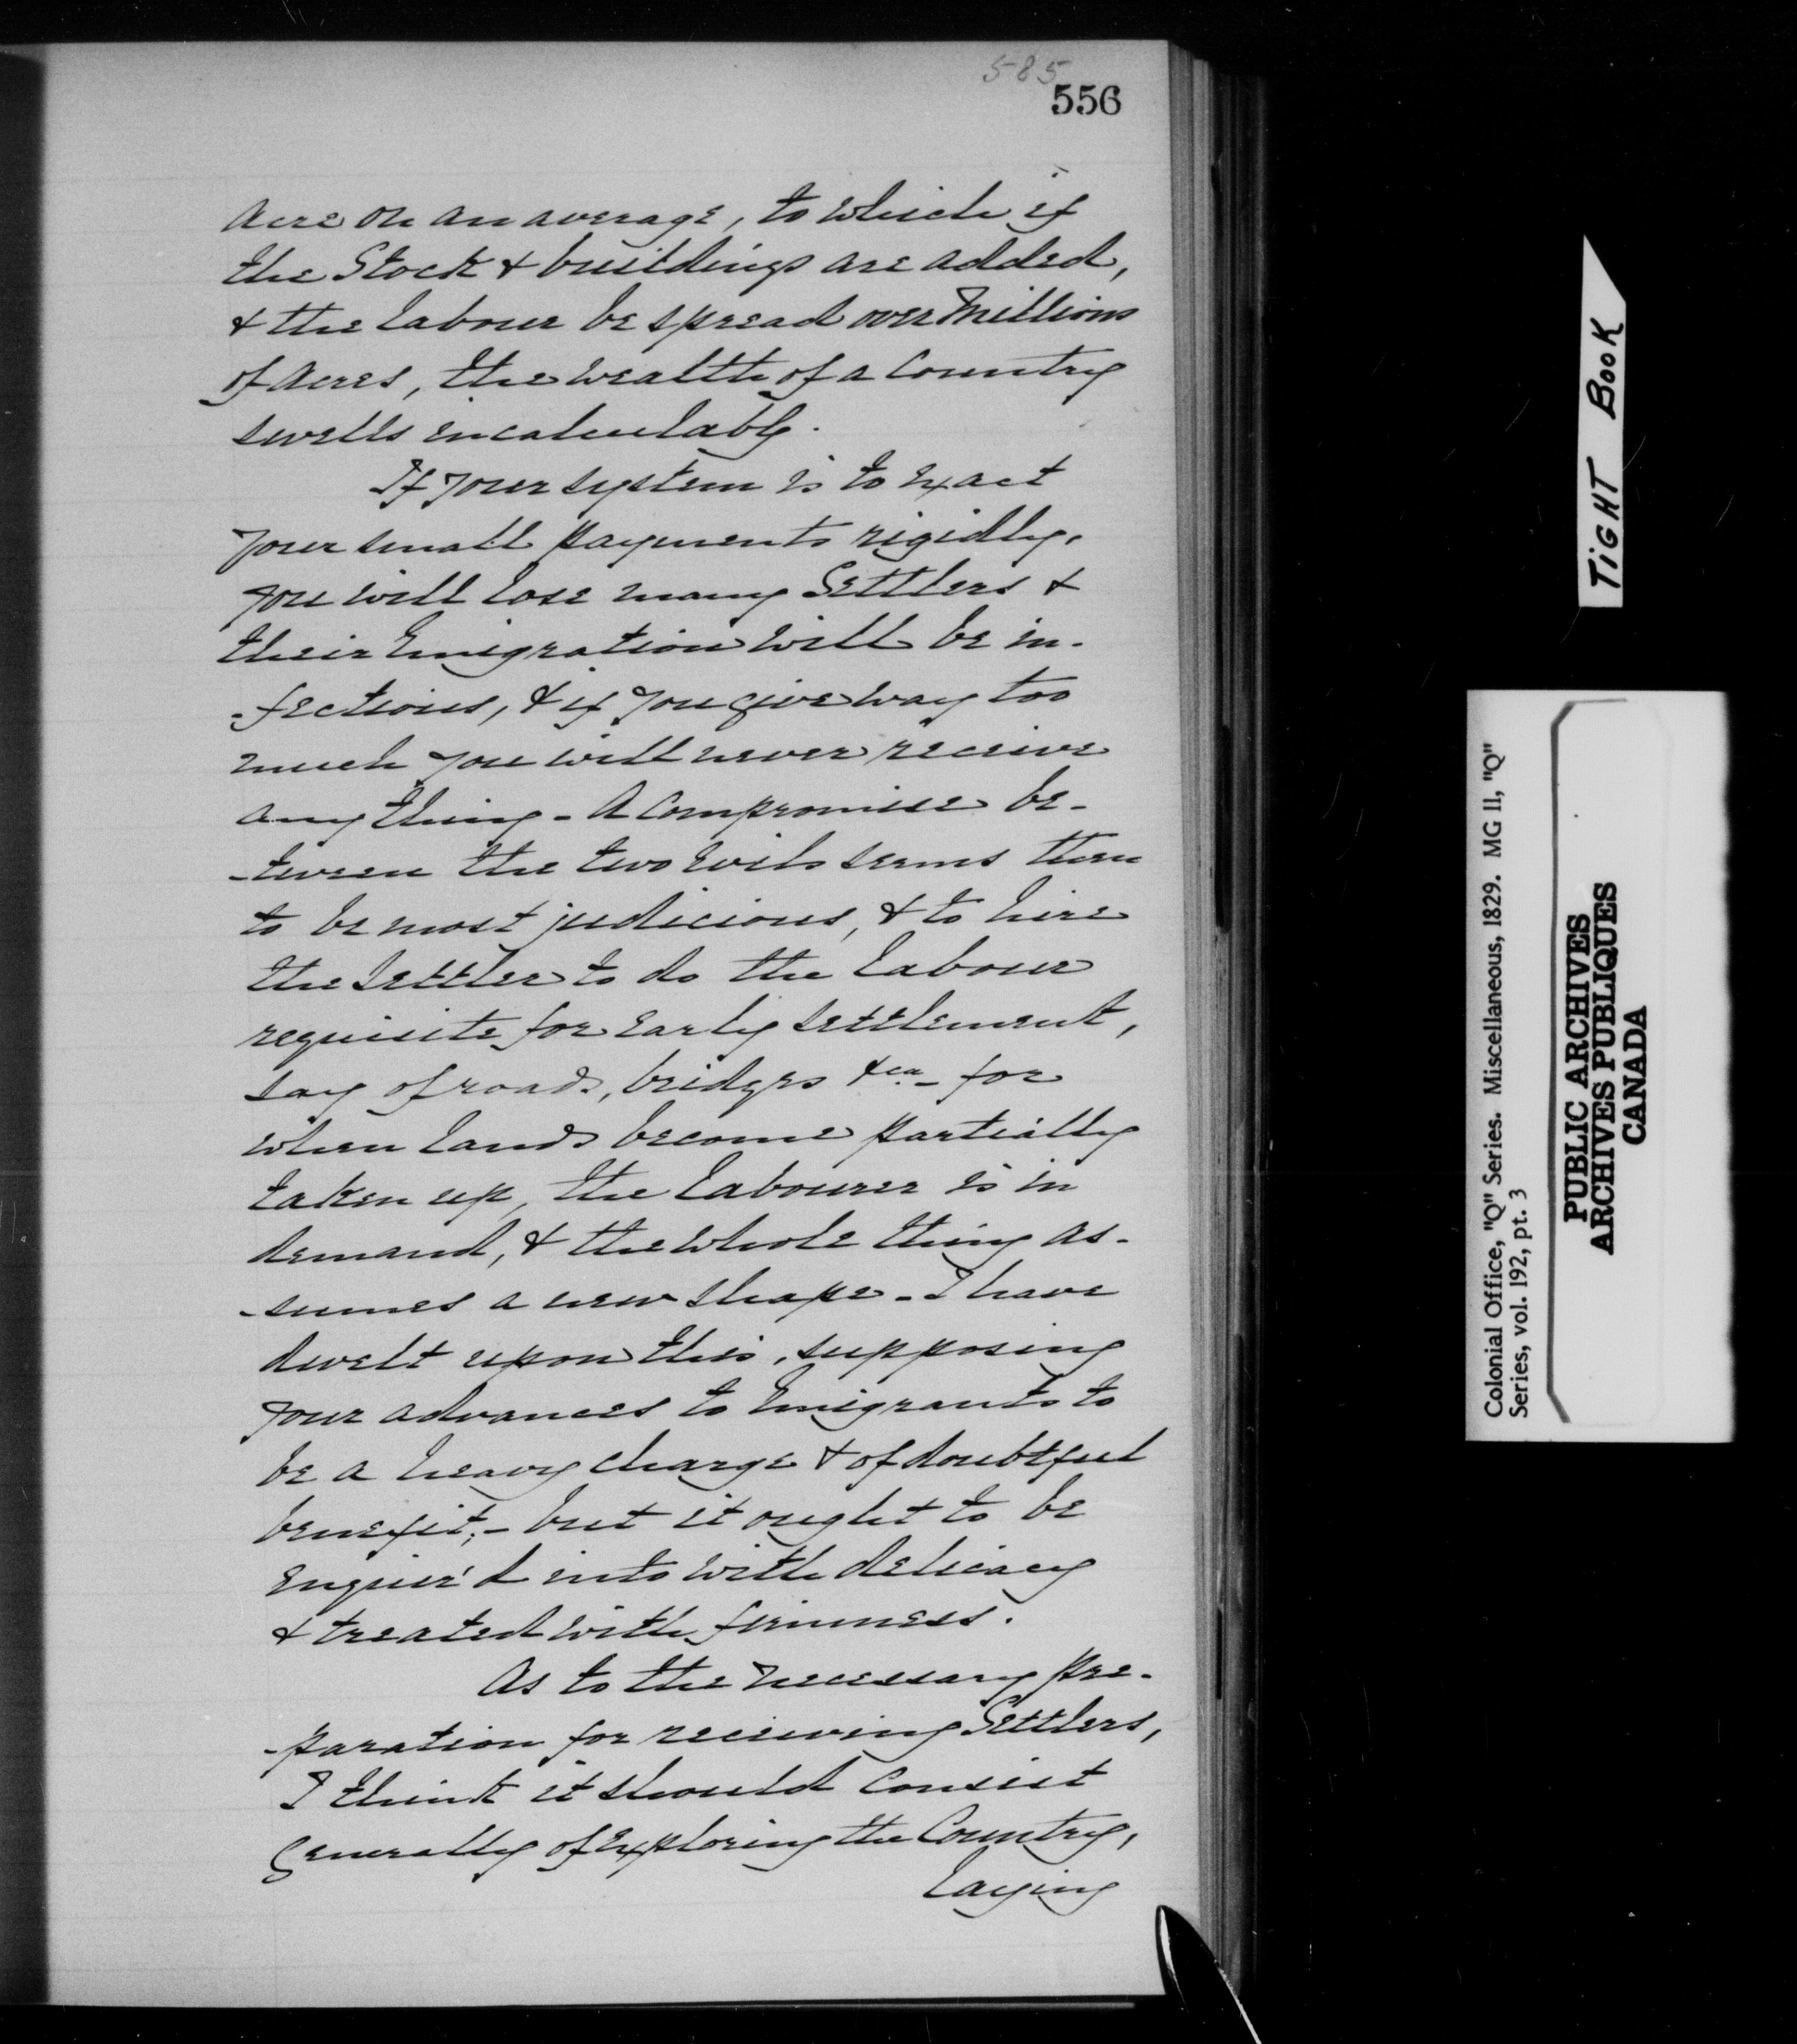 585
556
acre on an average, to which if
the Stock & buildings are added,
& the labour be spread over Millions
of acres, the wealth of a Country
swells incalculably.
If your system is to exact
your small payments rigidly,
you will lose many Settlers &
their Emigration will be in-
-fectious, & if you give way too
much you will never receive
any thing - A Compromise be-
-tween the two evils seems then
to be most judicious, & to hire
the Settler to do the labour
requisite for early settlement,
say of roads, bridges &ca - for
when lands become partially
taken up, the labourer is in
demand, & the whole thing as-
-sumes a new shape - I have
dwelt upon this, supposing
your advances to Emigrants to
be a heavy charge & of doubtful
benefit; - but it ought to be
enquir'd into with delicacy
& treated with firmness.
As to the necessary pre-
-paration for receiving Settlers,
I think it should consist
generally of exploring the Country,
laying
TIGHT BOOK
Colonial Office, "Q" Series. Miscellaneous, 1829. MG 11, "Q"
Series, vol. 192, pt. 3
PUBLIC ARCHIVES
ARCHIVES PUBLIQUES
CANADA